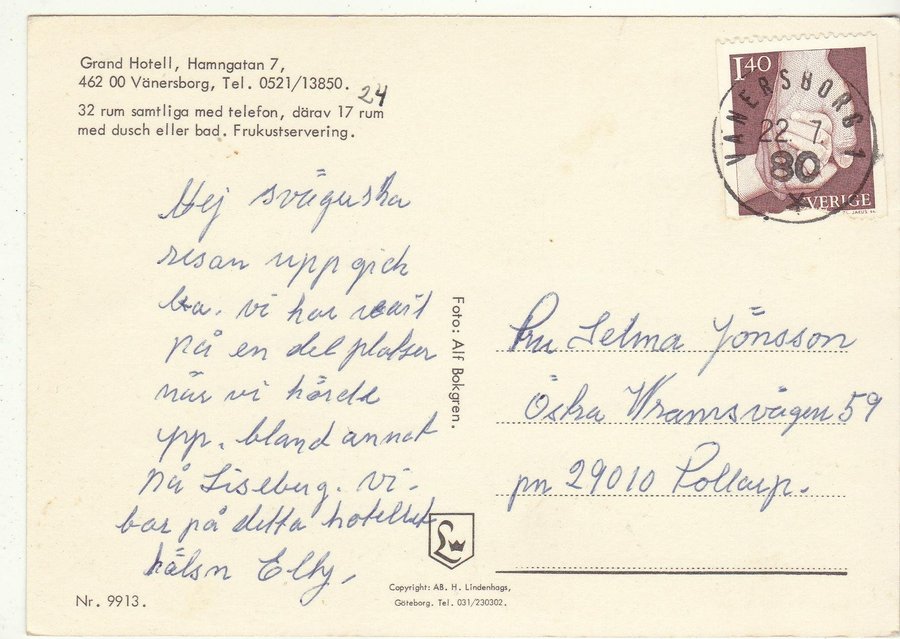 Grand Hotell, Hamngatan 7,
462 00 Vänersborg, Tel. 0521/13850.
24
32 rum samtliga med telefon, därav 17 rum
med dusch eller bad. Frukustservering.
Hej svägerska
resan upp gick
bra. vi har varit
på en del platser
när vi hörde
upp. bland annat
på Liseberg. vi
bor på detta hotellet
hälsn Elly,
Nr. 9913.
Foto: Alf Bokgren.
L
Copyright: AB. H. Lindenhags,
Göteborg. Tel. 031/230302.
1.40
SVERIGE
VÄNERSBORG 1
22. 7.
80
Fru Selma Jönsson
Östra Vramsvägen 59
pn 29010 Tollarp.